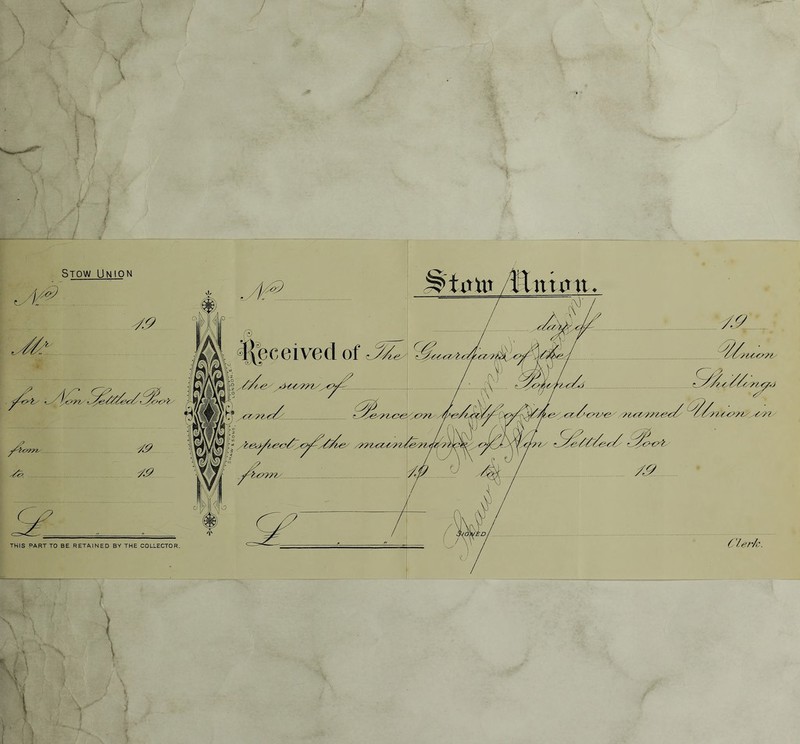 Stow Union
No
19
Mr.
for Non Settled Poor
from 19
to 19
£ . .
THIS PART TO BE RETAINED BY THE COLLECTOR.
No Stow Union.
day of 19
Received of The Guardians of the Union
the sum of Pounds Shillings
and Pence on behalf of the above named Union in
respect of the maintenance of Non Settled Poor
from 19 to 19
£ . .
SIGNED
Clerk.
Specimen
Shaw & Sons
London